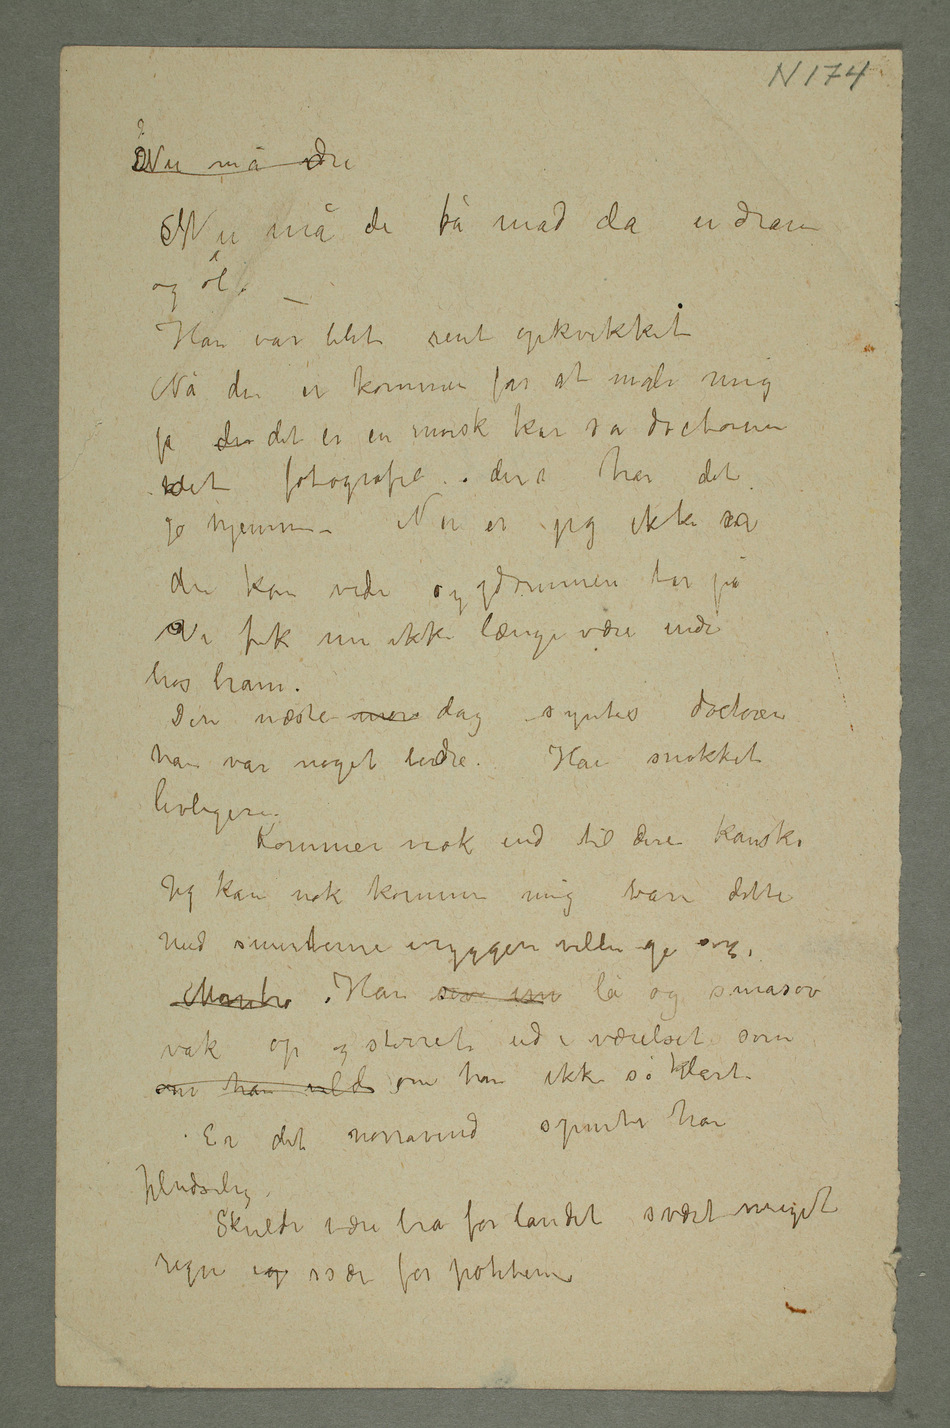 N 174
Nu må de
Nu må de få mad da en dram
og öl. –
Han var blet rent opkvikket
Nå de er kommen for at male mig
ja det er en morsk kar sa doctoren
det fotografie. ders har det
jo hjemme – Nu er jeg ikke
de kan vide sygdommen tar på
Vi fik nu ikke længe være inde
hos ham.
Den næste mor dag syntes doctoren
han var noget bedre. Han snakket
livligere.
Kommer nok ud til dere kanske
Jeg kan nok komme mig bare dette
med smerterne iryggen ville gi sig.
Han sov in lå og småsov
vak op og stirret ud i værelset som
om han vild om han ikke så klart
Er det norravind spurte han
pludselig.
Skulde være bra for landet svært meget
regn især for potterne